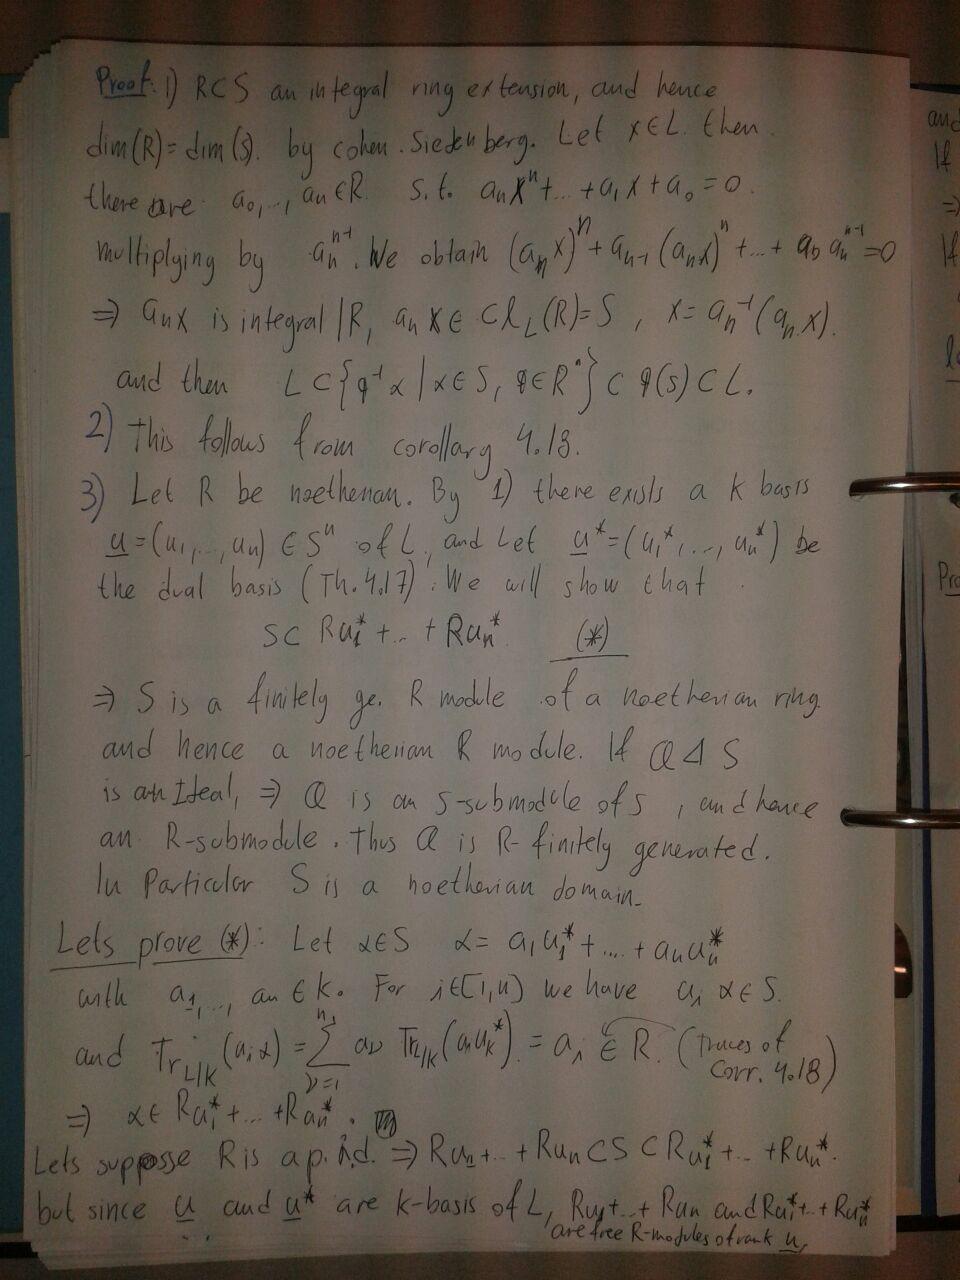 Proof: 1) R⊂S an integral ring extension, and hence
dim(R) = dim(S). by cohen . Siedenberg. Let x∈L. then
there are a₀,.., aₙ∈R s.t. aₙxⁿ+...+a₁x+a₀=0.
multiplying by aₙⁿ⁻¹. We obtain (aₙx)ⁿ+aₙ₋₁(aₙx)ⁿ+...+a₀aₙⁿ⁻¹=0
⇒ aₙx is integral |R, aₙx∈ Cl_L(R)=S , x=aₙ⁻¹(aₙx).
and then L⊂{q⁻¹α | α∈S, q∈R*}⊂ q(S)⊂L.
2) This follows from corollary 4.18.
3) Let R be noetherian. By 1) there exists a K basis
u=(u₁,..,uₙ)∈Sⁿ of L, and Let u*=(u₁*,..,uₙ*) be
the dual basis (Th. 4.17). We will show that
S⊂ Ru₁*+..+Ruₙ* (*)
⇒ S is a finitely ge. R module of a noetherian ring
and hence a noetherian R module. If Q ⊲ S
is an Ideal, ⇒ Q is an S-submodule of S , and hence
an R-submodule. Thus Q is R-finitely generated.
In Particular S is a noetherian domain.
Lets prove (*): Let α∈S α= a₁u₁*+....+aₙuₙ*
with a₁,.., aₙ∈K. For i∈[1,n] we have uᵢα∈S.
and Tr_L|K(uᵢα)=∑ᵥ₌₁ⁿ aᵥ Tr_L|K(uᵢuₖ*) = aᵢ∈R. (Traces of
Corr. 4.18)
⇒ α∈Ru₁*+...+Ruₙ*.
Lets suppose R is a p.i.d. ⇒ Ru₁+..+Ruₙ⊂S⊂Ru₁*+..+Ruₙ*.
but since u and u* are K-basis of L, Ru₁+..+Ruₙ and Ru₁*+..+Ruₙ*
are free R-modules of rank n,
and
If
⇒
If